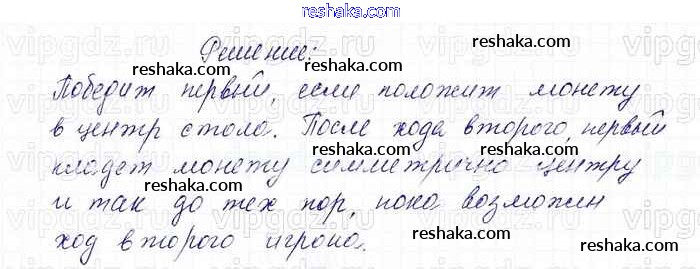 reshaka.com
Решение:
Победит первый, если положит монету
в центр стола. После хода второго, первый
кладет монету симметрично центру
и так до тех пор, пока возможен
ход второго игрока.
reshaka.com
reshaka.com
reshaka.com
reshaka.com
reshaka.com
reshaka.com
reshaka.com
reshaka.com
reshaka.com
reshaka.com
reshaka.com
reshaka.com
vipgdz.ru
vipgdz.ru
vipgdz.ru